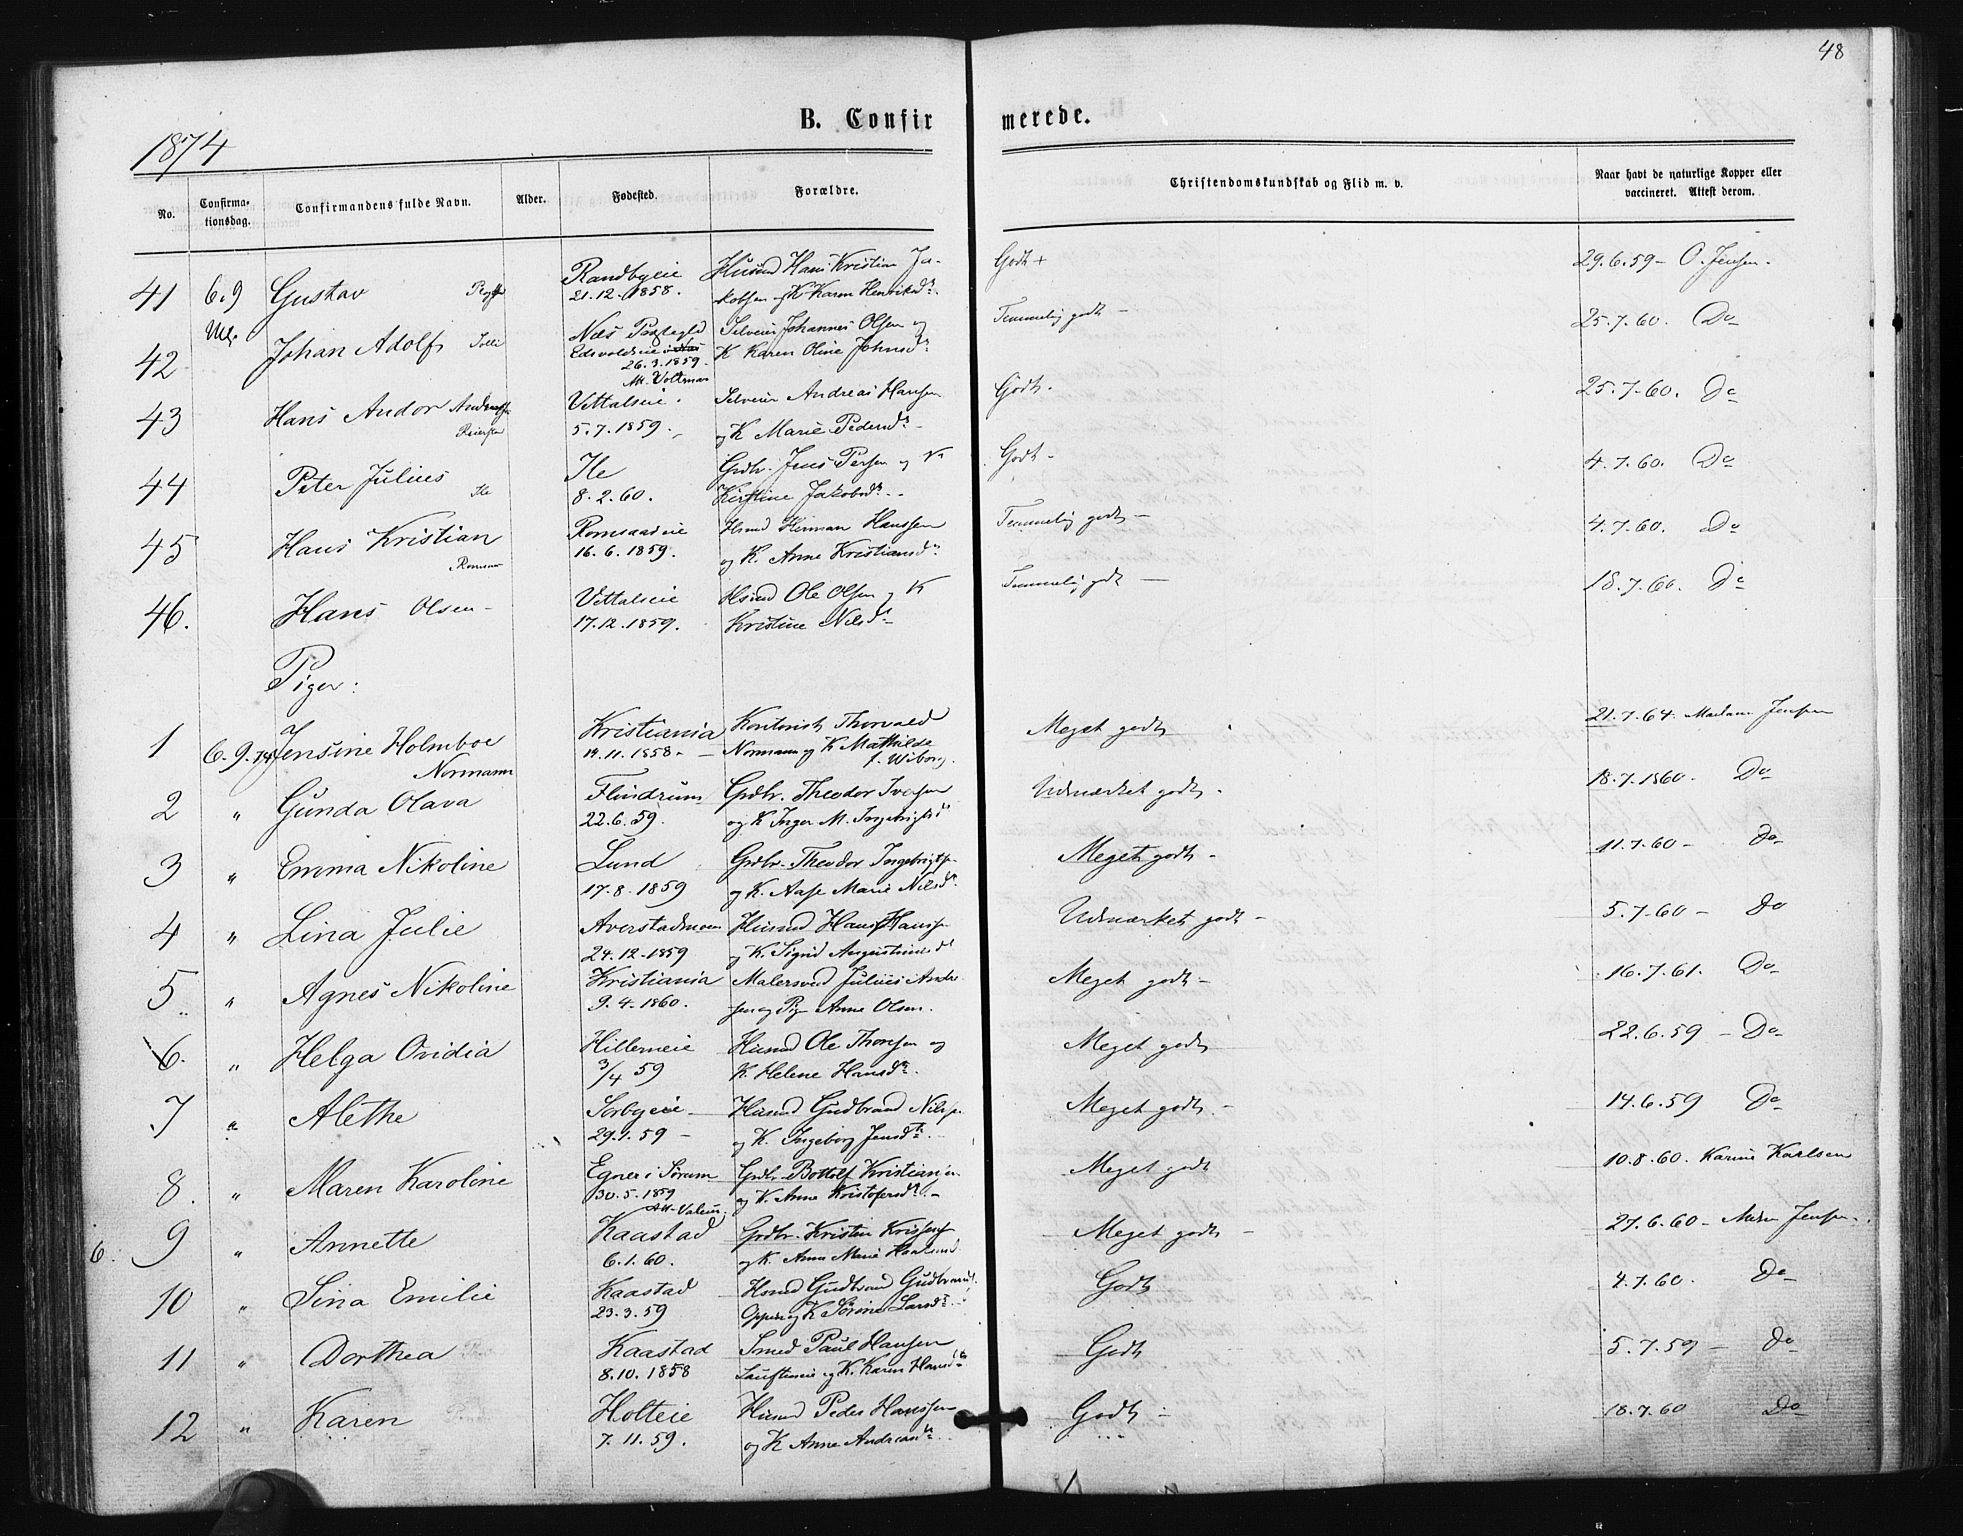 48
1874
B. Confirmerede.
No. Confirmationsdag. Confirmandens fulde Navn. Alder. Fødested. Forældre. Christendomskundskab og Flid m. v. Naar havt de naturlige Kopper eller vaccineret. Attest derom.
41 6.9 Gustav Randbyeie Husmd Hans Kristian Ja- Godt + 29.6.59 - O. Jensen.
21.12.1858. kobsen og K Karen Henriksdr.
42 Johan Adolf Næs Præstegld Selveier Johannes Olsen og Temmelig godt - 25.7.60. Do
26.3.1859. K Karen Oline Johnsdr
43 Hans Andor Vettalseie. Selveier Andreas Hansen Godt. 25.7.60. Do
5.7.1859. og K Marie Pedersdr
44 Peter Julius Ile Ile Grdbr. Jens Persen og K Godt - 4.7.60. Do
8.2.60. Kirstine Jakobsdr.
45 Hans Kristian Romsaaseie Hsmd Herman Hanssen Temmelig godt - 4.7.60. Do
16.6.1859. og K. Anne Kristiansdr
46. Hans Olsen - Vettalseie Hsmd Ole Olsen og K Temmelig godt - 18.7.60. Do
17.12.1859. Kristine Nilsdr
Piger:
1 6.9.74 Jensine Holmboe Kristiania Kontorist Thorvald Meget godt 21.7.64. Madam Jensen
Normann 19.11.1858 - Normann og K Mathilde
f. Wiborg.
2 " Gunda Olava Flindrum Grdbr. Theodor Iversen Udmærket godt. 18.7.1860. Do
22.6.59. og K Inger M. Ingebrigtsdr
3 " Emma Nikoline Lund Grdbr. Theodor Ingebrigtsen Meget godt - 11.7.60 - Do
17.8.1859 og K. Aase Marie Nilsdr.
4 " Lina Julie Averstadmoen Husmd Hans Hanssen Udmærket godt - 5.7.60 - Do
24.12.1859 og K. Sigrid
5 " Agnes Nikoline Kristiania Malersvend Julius Andersen Meget godt - 16.7.61. Do
9.4.1860. og Pige Anne Olsen.
6. " Helga Ovidia Hillerneie Husmd Ole Thoresen og Meget godt 22.6.59 - Do
3/4 59 K. Helene Hansdr.
7 " Alethe Sorbyeie - Husmd Gudbrand Nilsen Meget godt - 14.6.59 Do
29.1.59 - og K. Ingeborg Jensdtr.
8. " Maren Karoline Egner i Sørum Grdbr Bottolf Kristiansen Meget godt 10.8.60. Karine Karlsen
30.5.1859 og K. Anne Kristofersdr. -
6. 9 " Annette Kaastad Grdbr. Kristen Meget godt - 27.6.60 - Jensen.
6.1.60. og K. Anne Marie
10 " Sina Emilie Kaastad Hsmd Gudbrand Gudbrands. Godt 4.7.60. Do
23.3.59 og K Sørine Larsdr.
11 " Dorthea Kaastad Smed Paul Hansen Godt 5.7.59 - Do
8.10.1858 og K. Karen Hansdtr
12 " Karen Holteie Husmd Peder Hanssen Godt - 18.7.60 Do
7.11.59. og K Anne Andreasdtr